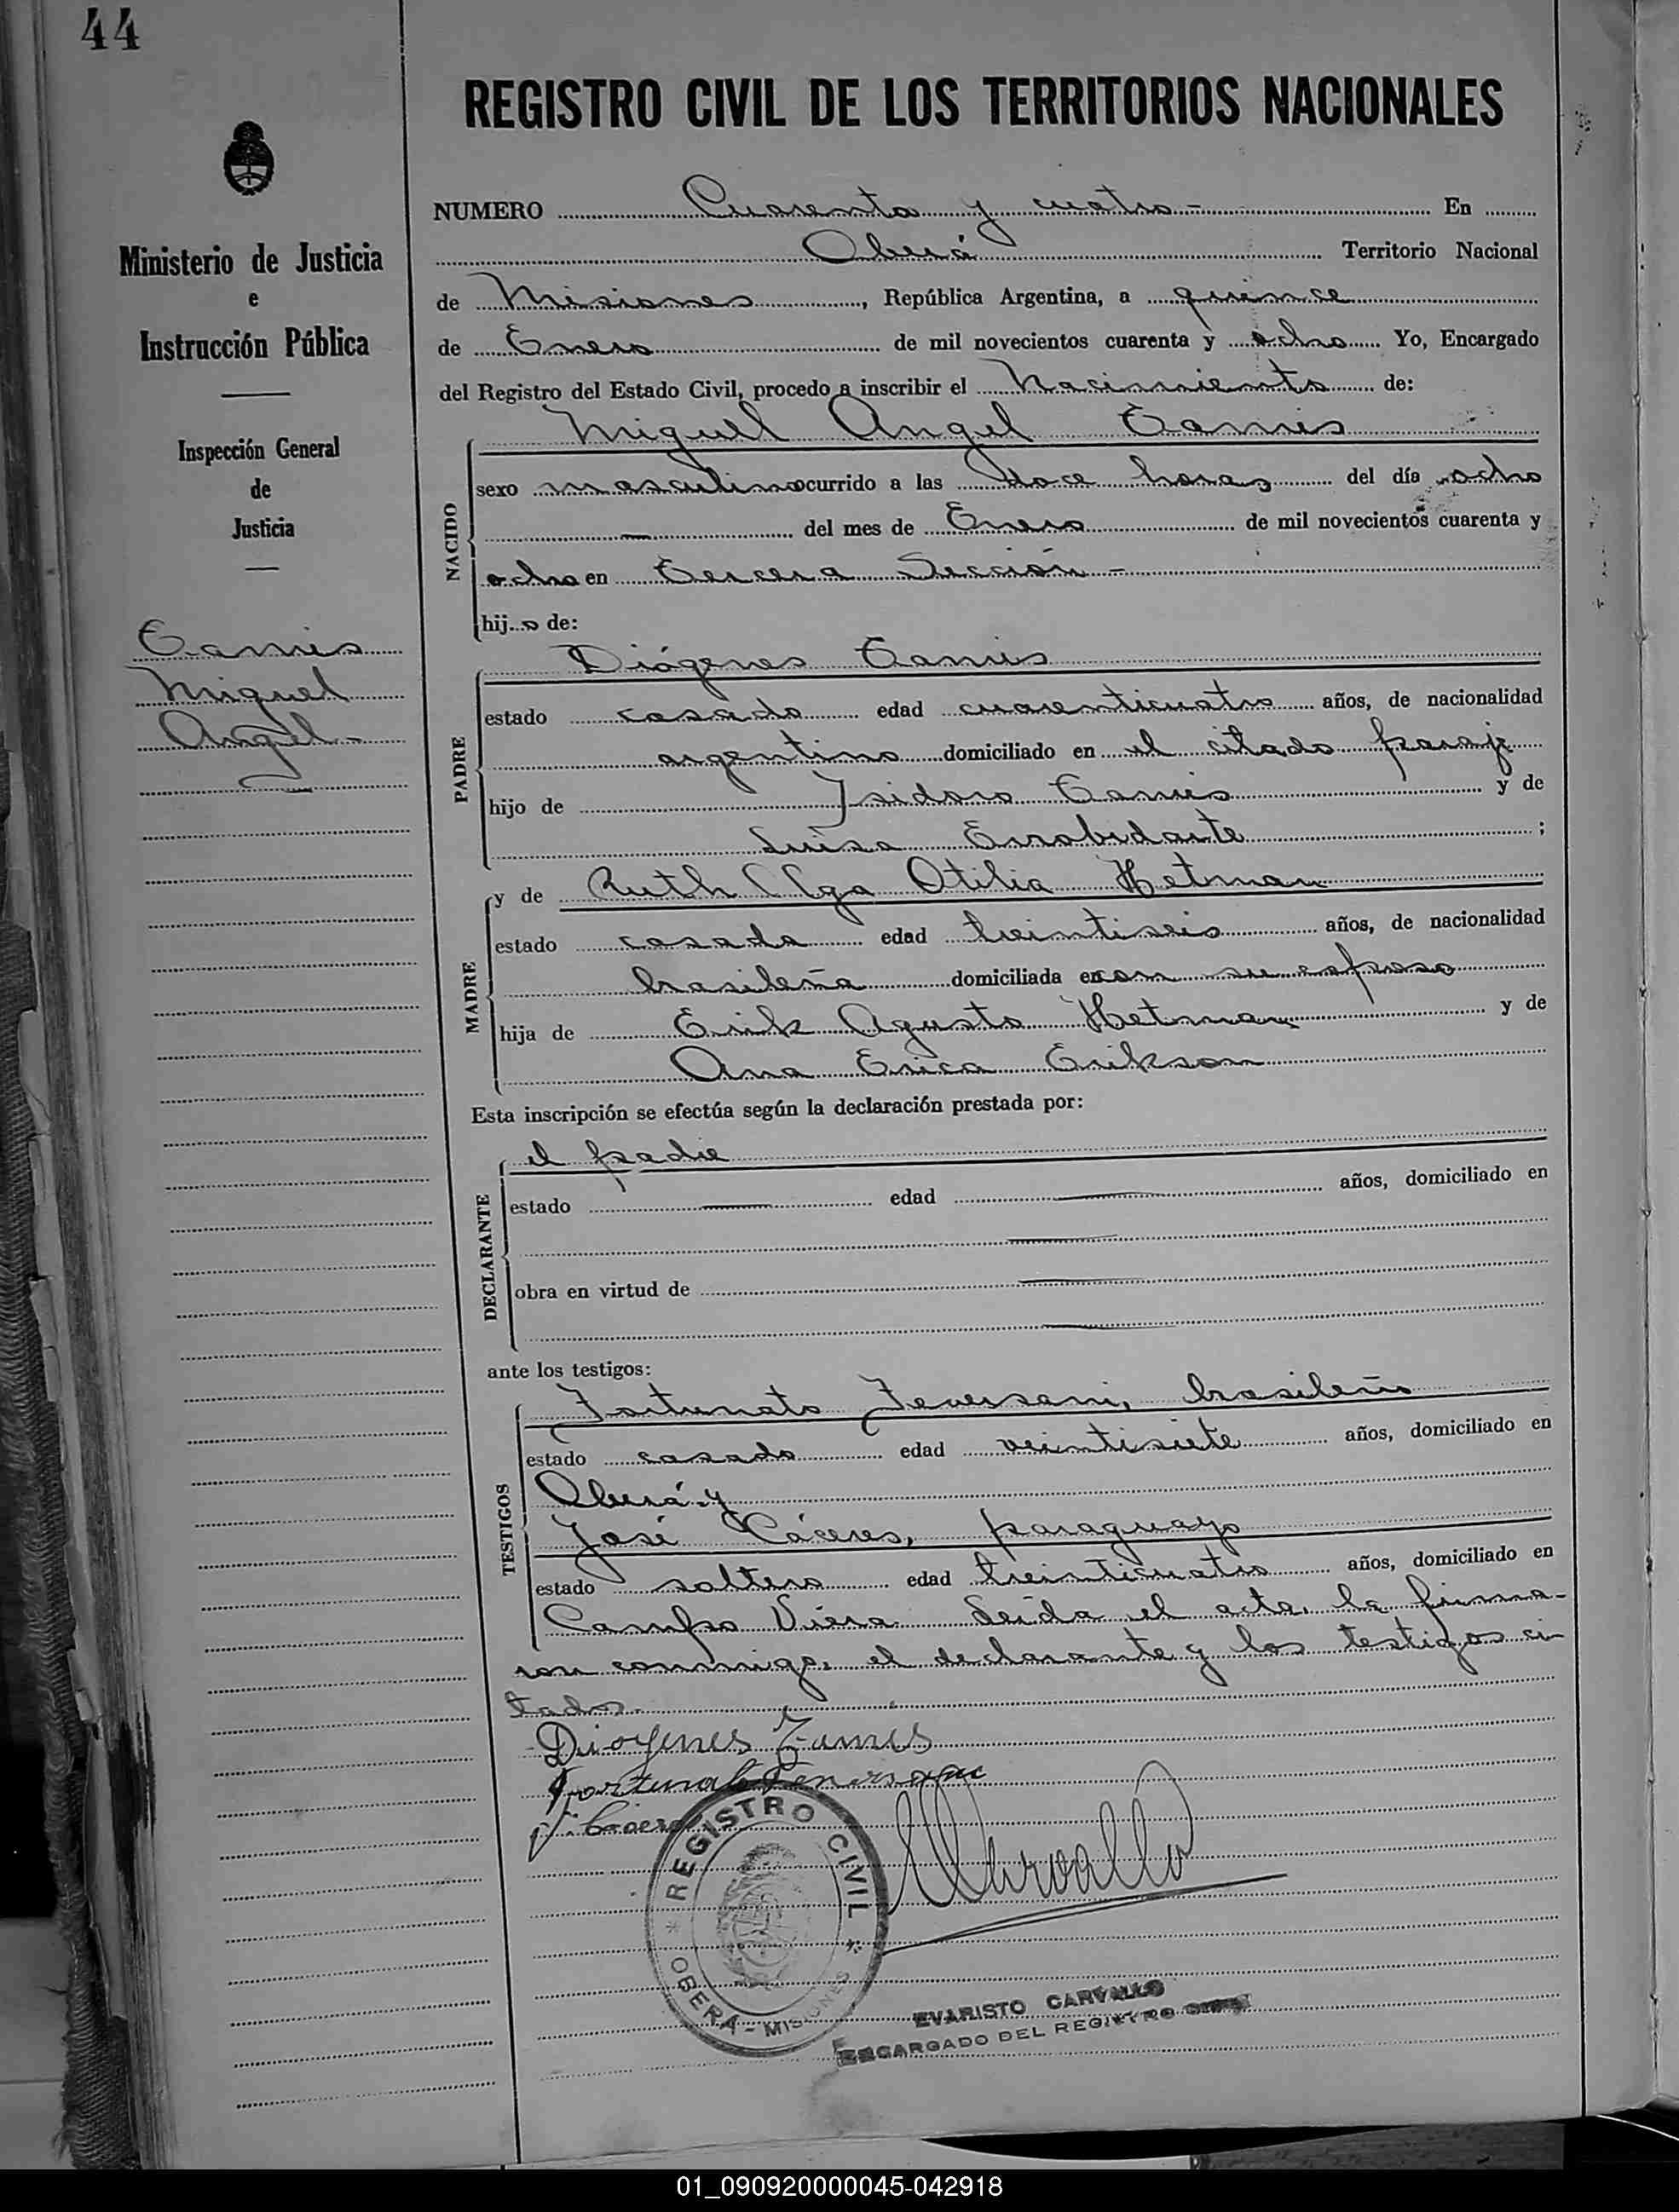 44
REGISTRO CIVIL DE LOS TERRITORIOS NACIONALES
Ministerio de Justicia
e
Instrucción Pública
Inspección General
de
Justicia
Miguel
Angel
NUMERO Cuarenta y cuatro En
Oberá Territorio Nacional
de Misiones, República Argentina, a quince
de Enero de mil novecientos cuarenta y ocho Yo, Encargado
del Registro del Estado Civil, procedo a inscribir el Nacimiento de:
Miguel Angel
NACIDO
sexo masculino ocurrido a las doce horas del día ocho
del mes de Enero de mil novecientos cuarenta y
ocho en Tercera Sección
hijo de:
Diógenes
PADRE
estado casado edad cuarenticuatro años, de nacionalidad
argentino domiciliado en el citado paraje
hijo de Isidoro y de
Luisa ;
MADRE
y de Ruth Olga Otilia Hetman
estado casada edad treintiseis años, de nacionalidad
brasileña domiciliada en con su esposo
hija de Erik Agusto Hetman y de
Ana Erica Erikson
Esta inscripción se efectúa según la declaración prestada por:
DECLARANTE
el padre
estado edad años, domiciliado en
obra en virtud de
ante los testigos:
TESTIGOS
Fortunato brasileño
estado casado edad veintisiete años, domiciliado en
Oberá y
José Cáceres, paraguayo
estado soltero edad treinticuatro años, domiciliado en
Campo Viera Leída el acta, la firma-
ron conmigo, el declarante y los testigos ci-
tados.
Diogenes
REGISTRO CIVIL
OBERA - MISIONES
EVARISTO CARVALLO
ENCARGADO DEL REGISTRO CIVIL
01_090920000045-042918